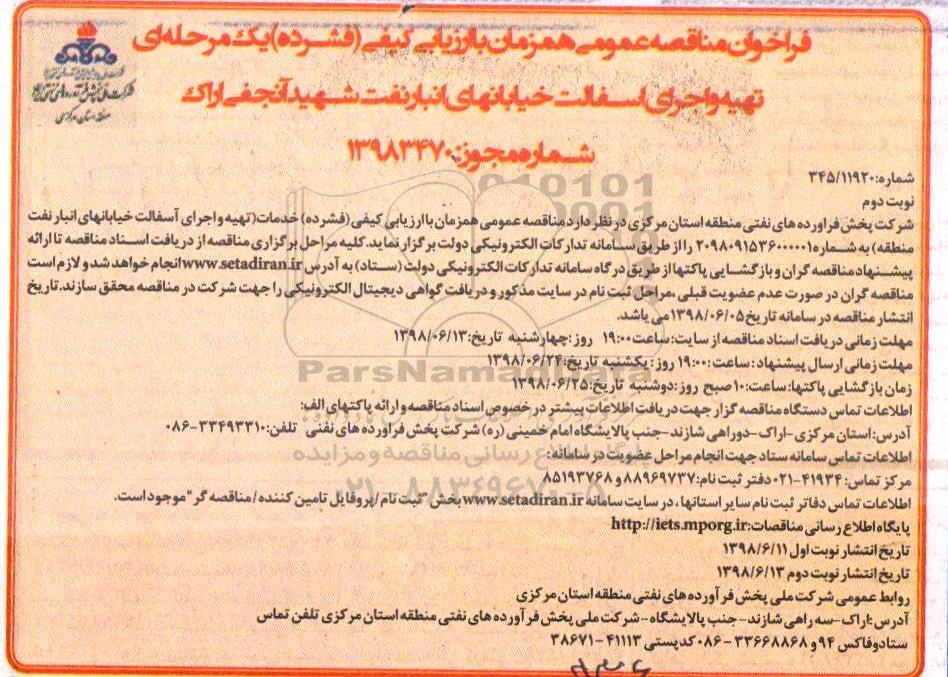 فراخوان مناقصه عمومی همزمان با ارزیابی کیفی (فشرده) یک مرحله‌ای
تهیه و اجرای اسفالت خیابانهای انبار نفت شهید آنجفی اراک
شماره مجوز: ۱۳۹۸۳۴۷۰
شماره: ۳۴۵/۱۱۹۲۰
نوبت دوم
شرکت پخش فراورده های نفتی منطقه استان مرکزی در نظر دارد مناقصه عمومی همزمان با ارزیابی کیفی (فشرده) خدمات (تهیه و اجرای آسفالت خیابانهای انبار نفت
منطقه) به شماره ۲۰۹۸۰۹۱۵۳۶۰۰۰۰۰۱ را از طریق سامانه تدارکات الکترونیکی دولت برگزار نماید. کلیه مراحل برگزاری مناقصه از دریافت اسناد مناقصه تا ارائه
پیشنهاد مناقصه گران و بازگشایی پاکتها از طریق درگاه سامانه تدارکات الکترونیکی دولت (ستاد) به آدرس www.setadiran.ir انجام خواهد شد و لازم است
مناقصه گران در صورت عدم عضویت قبلی ،مراحل ثبت نام در سایت مذکور و دریافت گواهی دیجیتال الکترونیکی را جهت شرکت در مناقصه محقق سازند. تاریخ
انتشار مناقصه در سامانه تاریخ ۱۳۹۸/۰۶/۰۵ می باشد.
مهلت زمانی دریافت اسناد مناقصه از سایت: ساعت ۱۹:۰۰ روز: چهارشنبه تاریخ: ۱۳۹۸/۰۶/۱۳
مهلت زمانی ارسال پیشنهاد: ساعت: ۱۹:۰۰ روز: یکشنبه تاریخ: ۱۳۹۸/۰۶/۲۴
زمان بازگشایی پاکتها: ساعت: ۱۰ صبح روز: دوشنبه تاریخ: ۱۳۹۸/۰۶/۲۵
اطلاعات تماس دستگاه مناقصه گزار جهت دریافت اطلاعات بیشتر در خصوص اسناد مناقصه و ارائه پاکتهای الف:
آدرس: استان مرکزی-اراک-دوراهی شازند-جنب پالایشگاه امام خمینی (ره) شرکت پخش فراورده های نفتی تلفن: ۳۳۴۹۳۳۱۰-۰۸۶
اطلاعات تماس سامانه ستاد جهت انجام مراحل عضویت در سامانه:
مرکز تماس: ۴۱۹۳۴-۰۲۱ دفتر ثبت نام: ۸۸۹۶۹۷۳۷ و ۸۵۱۹۳۷۶۸
اطلاعات تماس دفاتر ثبت نام سایر استانها، در سایت سامانه www.setadiran.ir بخش "ثبت نام /پروفایل تامین کننده/مناقصه گر" موجود است.
پایگاه اطلاع رسانی مناقصات: http://iets.mporg.ir
تاریخ انتشار نوبت اول ۱۳۹۸/۶/۱۱
تاریخ انتشار نوبت دوم ۱۳۹۸/۶/۱۳
روابط عمومی شرکت ملی پخش فرآورده های نفتی منطقه استان مرکزی
آدرس: اراک-سه راهی شازند-جنب پالایشگاه-شرکت ملی پخش فرآورده های نفتی منطقه استان مرکزی تلفن تماس
ستاد وفاکس ۹۴ و ۳۳۶۶۸۸۶۸-۰۸۶ کدپستی ۴۱۱۱۳-۳۸۶۷۱
ParsNamadData